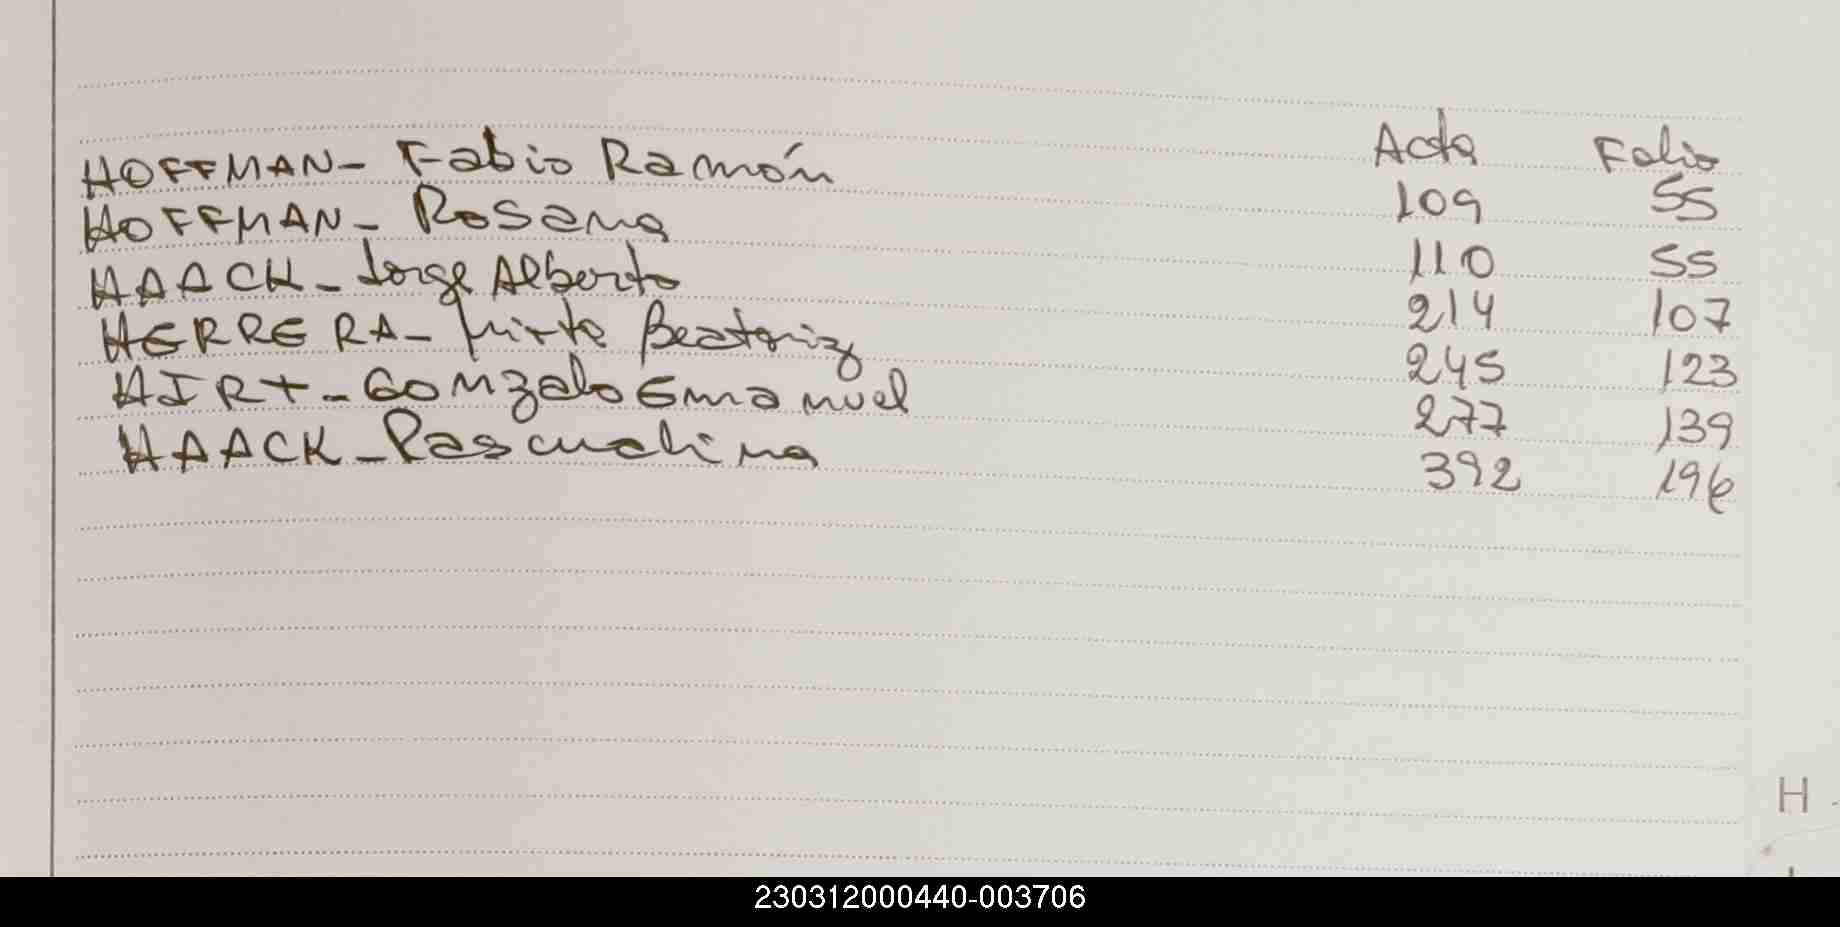 Acta Folio
HOFFMAN- Fabio Ramón 109 55
HOFFMAN- Rosana 110 55
HAACK- Jorge Alberto 214 107
HERRERA- Mirta Beatriz 245 123
HIRT- Gonzalo Emanuel 277 139
HAACK- Pascualina 392 196
H
230312000440-003706